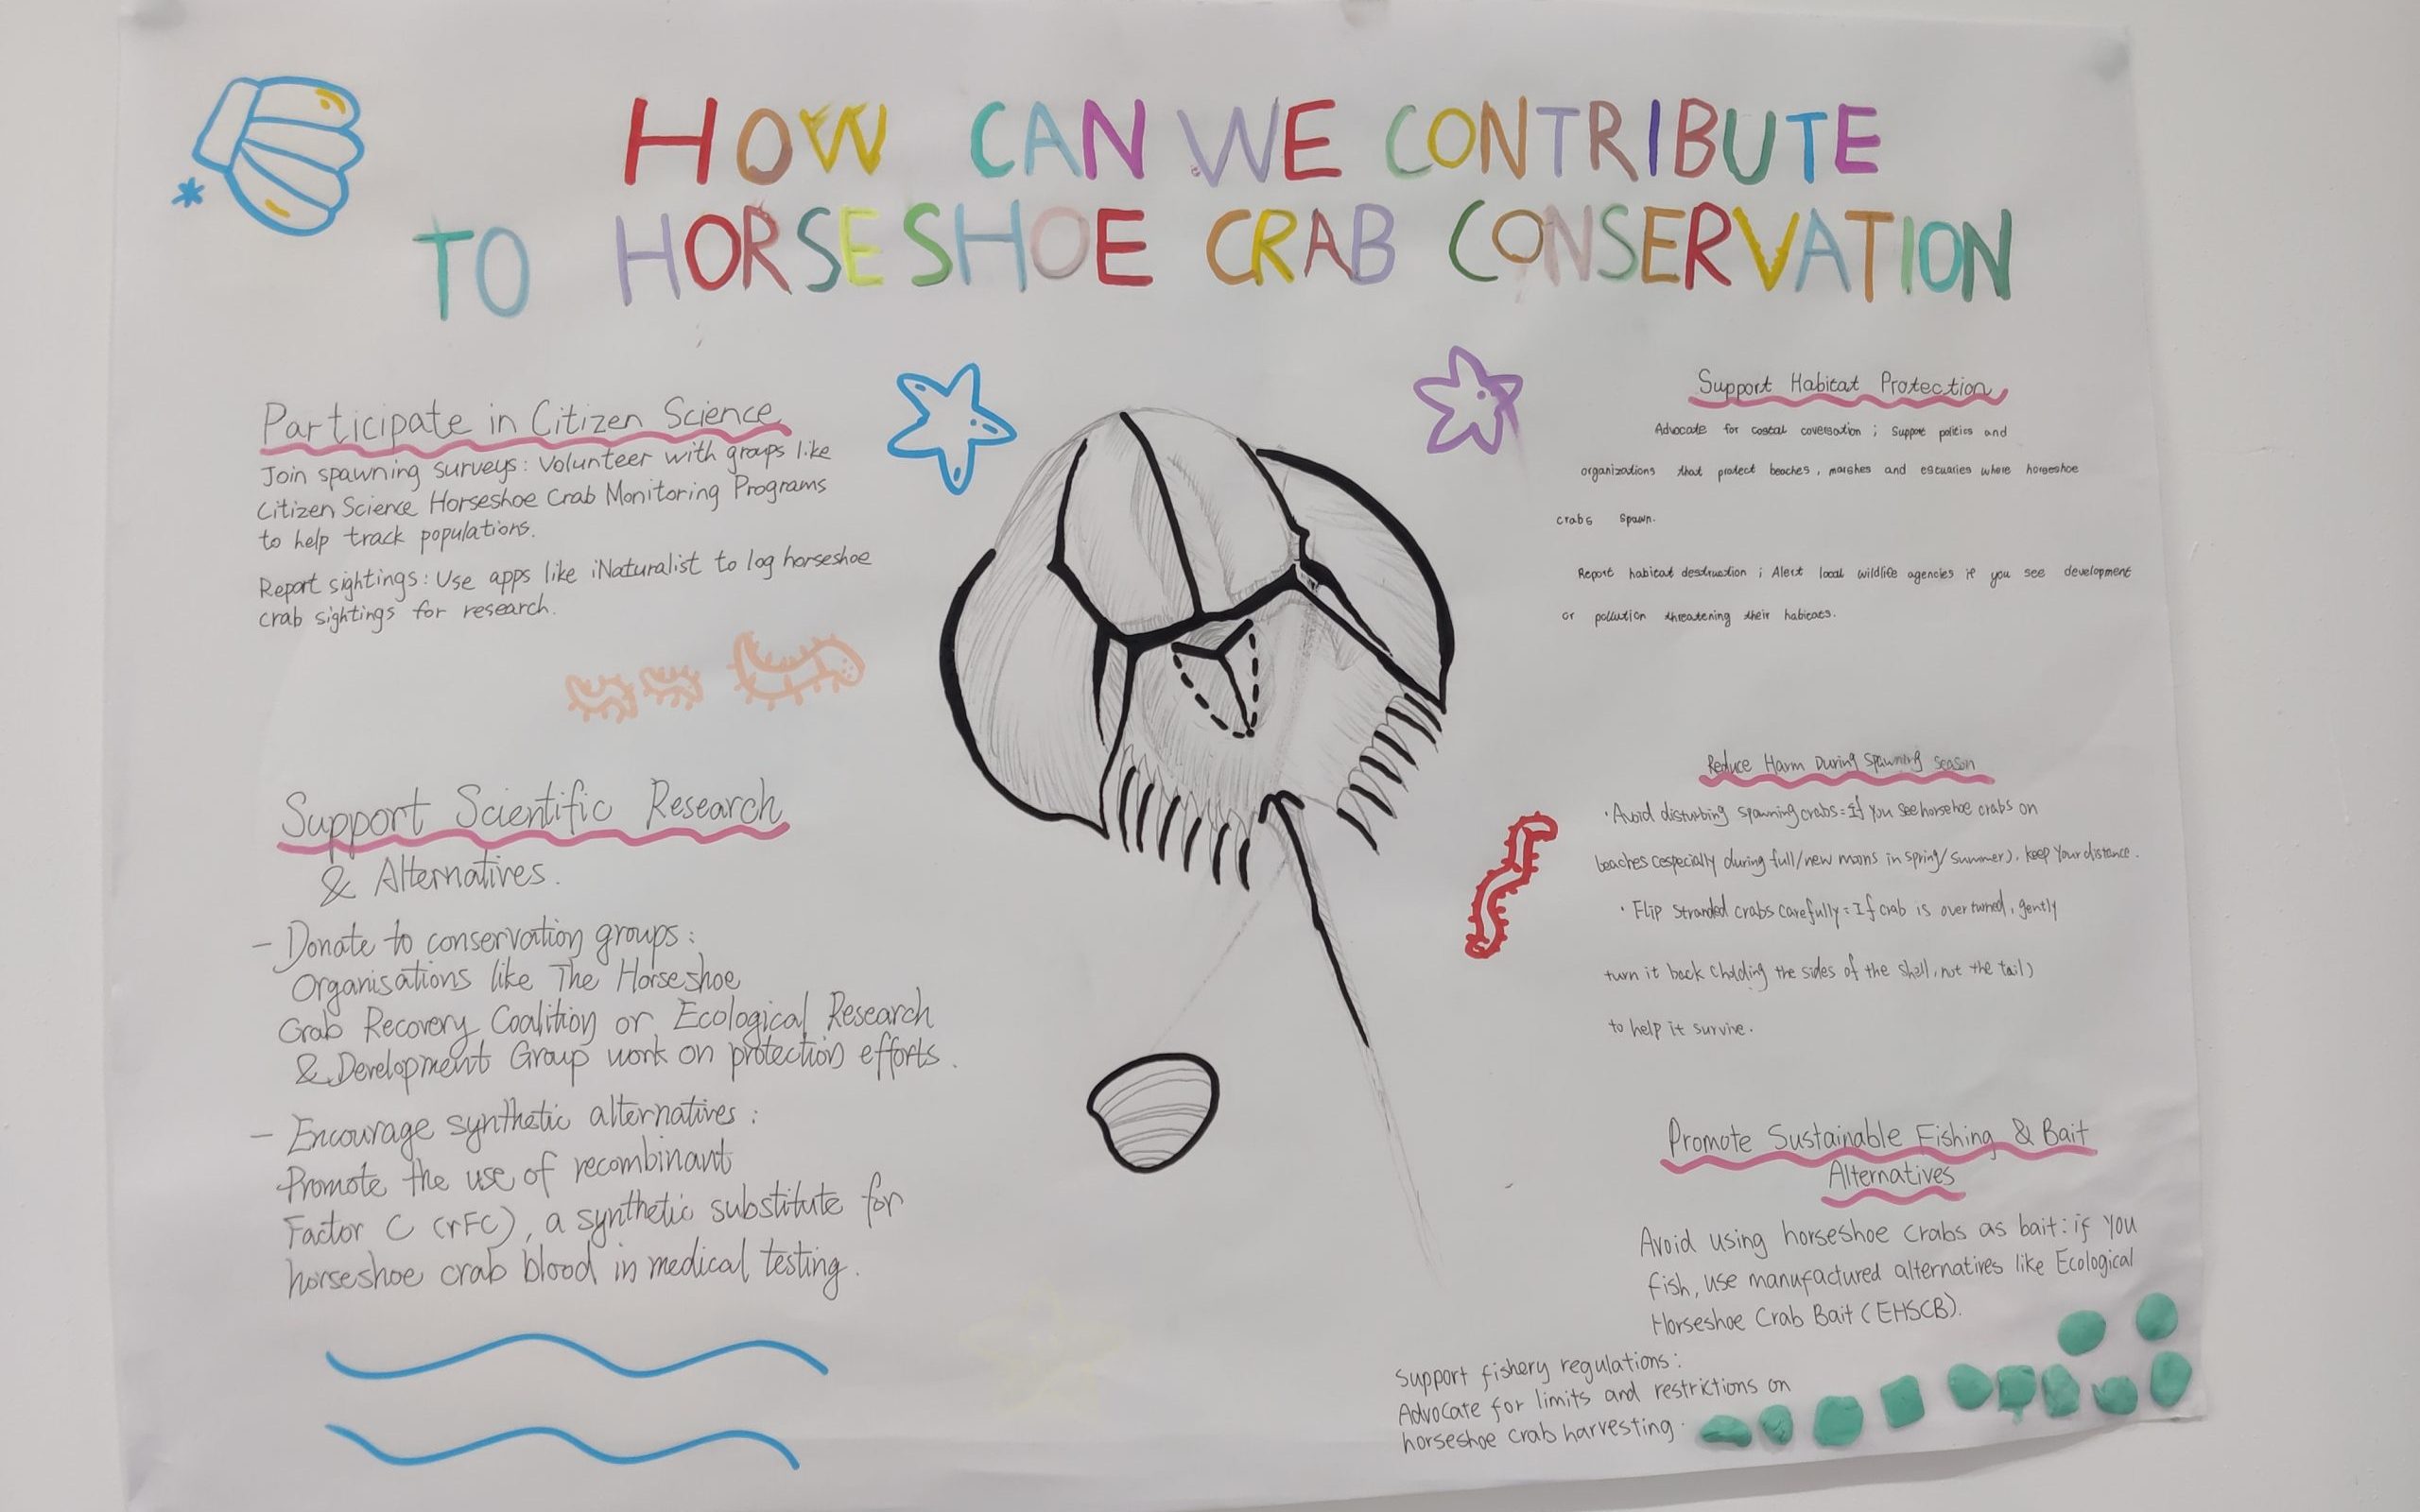 HOW CAN WE CONTRIBUTE
TO HORSESHOE CRAB CONSERVATION
Participate in Citizen Science
Join spawning surveys: Volunteer with groups like
Citizen Science Horseshoe Crab Monitoring Programs
to help track populations.
Report sightings: Use apps like iNaturalist to log horseshoe
crab sightings for research.
Support Scientific Research
& Alternatives.
- Donate to conservation groups:
Organisations like The Horseshoe
Crab Recovery Coalition or Ecological Research
& Development Group work on protection efforts.
- Encourage synthetic alternatives:
Promote the use of recombinant
Factor C (rFC), a synthetic substitute for
horseshoe crab blood in medical testing.
Support Habitat Protection
Advocate for costal coversation ; Support politics and
organizations that protect beaches, marshes and estuaries where horseshoe
crabs spawn.
Report habitat destruction ; Alert local wildlife agencies if you see development
or pollution threatening their habitats.
Reduce Harm During Spawning Season
· Avoid disturbing spawning crabs: If you see horsehoe crabs on
beaches (especially during full/new moons in spring/summer), keep your distance.
· Flip stranded crabs carefully: If crab is overturned, gently
turn it back (holding the sides of the shell, not the tail)
to help it survive.
Promote Sustainable Fishing & Bait
Alternatives
Avoid using horseshoe crabs as bait: if you
fish, use manufactured alternatives like Ecological
Horseshoe Crab Bait (EHSCB).
Support fishery regulations:
Advocate for limits and restrictions on
horseshoe crab harvesting.